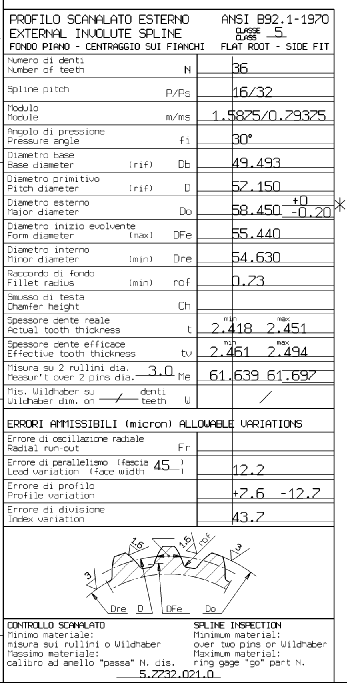 PROFILO SCANALATO ESTERNO ANSI B92.1-1970
EXTERNAL INVOLUTE SPLINE CLASSE CLASS 5
FONDO PIANO - CENTRAGGIO SUI FIANCHI FLAT ROOT - SIDE FIT
Numero di denti
Number of teeth N 36
Spline pitch P/Ps 16/32
Modulo
Module m/ms 1.5875/0.79375
Angolo di pressione
Pressure angle fi 30°
Diametro base
Base diameter (rif) Db 49.493
Diametro primitivo
Pitch diameter (rif) D 57.150
Diametro esterno
Major diameter Do 58.450 +0 -0.20 *
Diametro inizio evolvente
Form diameter (max) DFe 55.440
Diametro interno
Minor diameter (min) Dre 54.630
Raccordo di fondo
Fillet radius (min) rof 0.73
Smusso di testa
Chamfer height Ch
Spessore dente reale min max
Actual tooth thickness t 2.418 2.451
Spessore dente efficace min max
Effective tooth thickness tv 2.461 2.494
Misura su 2 rullini dia.
Measur't over 2 pins dia. 3.0 Me 61.639 61.697
Mis. Wildhaber su denti
Wildhaber dim. on / teeth W /
ERRORI AMMISSIBILI (micron) ALLOWABLE VARIATIONS
Errore di oscillazione radiale
Radial run-out Fr
Errore di parallelismo (fascia 45 )
Lead variation (face width ) 12.2
Errore di profilo
Profile variation +7.6 -12.7
Errore di divisione
Index variation 43.7
1.6 1.6 rof 3
3
Dre D DFe Do
CONTROLLO SCANALATO SPLINE INSPECTION
Minimo materiale: Minimum material:
misura sui rullini o Wildhaber over two pins or Wildhaber
Massimo materiale: Maximum material:
calibro ad anello "passa" N. dis. ring gage "go" part N.
5.7732.021.0